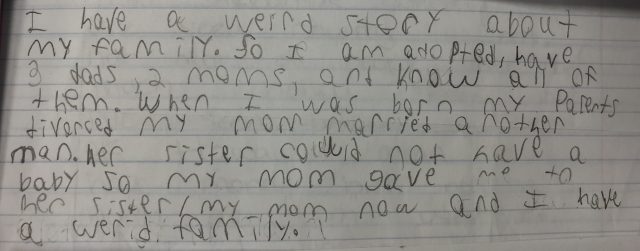 I have a weird story about
my family. So I am adopted, have
3 dads, 2 moms, and know all of
them. When I was born my Parents
divorced my mom married another
man. her sister could not have a
baby so my mom gave me to
her sister/my mom now and I have
a werid family.